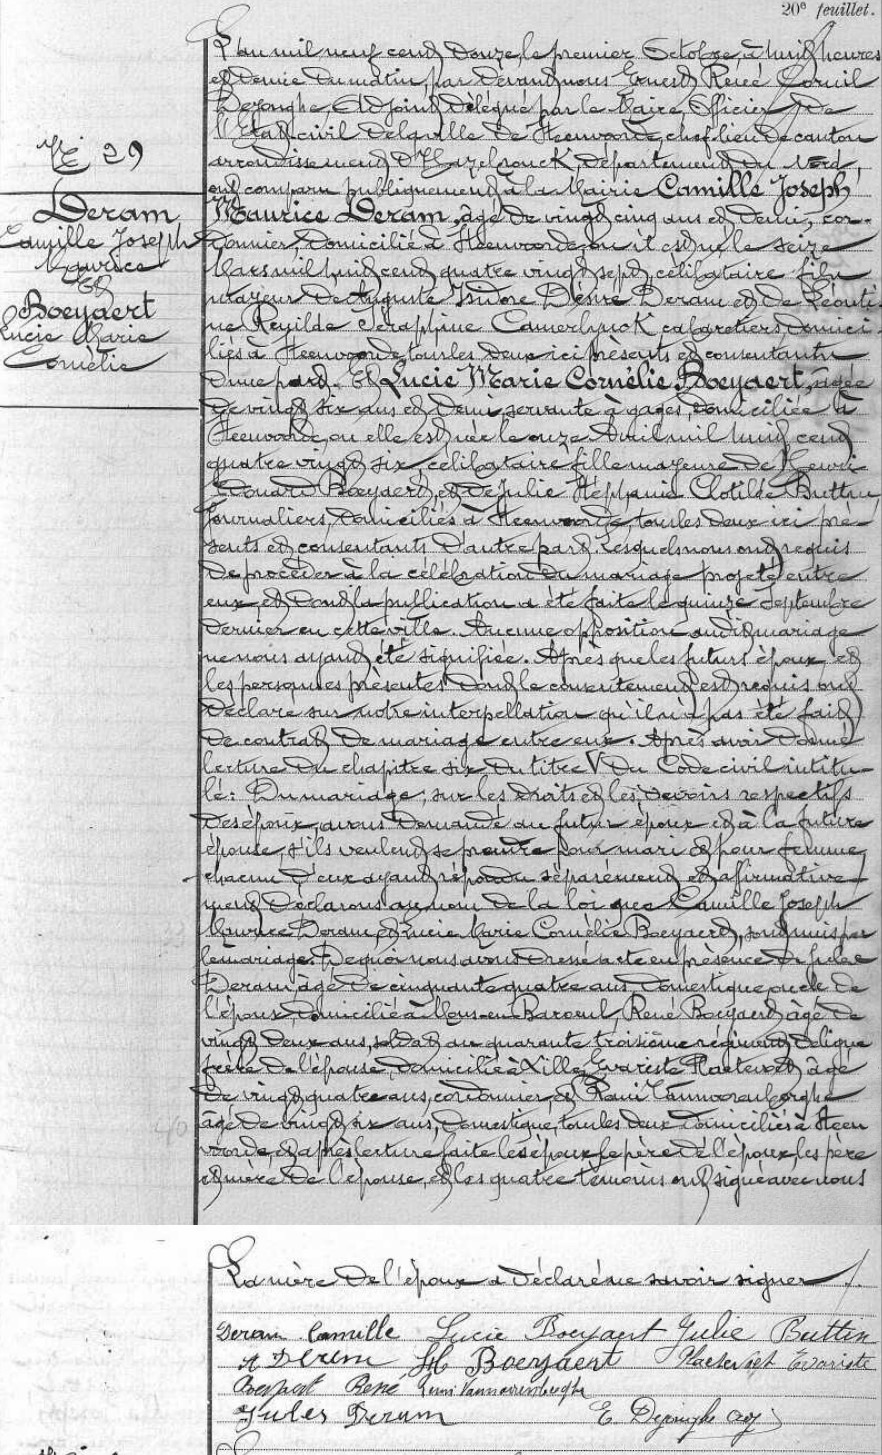 20e feuillet.
N° 29
Deram
Camille Joseph
Maurice
et
Boeyaert
Lucie Marie
Cornélie
L'an mil neuf cent douze, le premier Octobre, à huit heures
et demie du matin, par devant nous Ernest René Cornil
Dejonghe, Adjoint délégué par le Maire, Officier de
l'Etat civil de la ville de Steenvoorde, chef lieu de canton
arrondissement d'Hazebrouck, département du Nord,
ont comparu publiquement à la Mairie Camille Joseph
Maurice Deram, âgé de vingt cinq ans et demi, cor-
donnier, domicilié à Steenvoorde, où il est né le seize
Mars mil huit cent quatre vingt sept, célibataire fils
majeur de Auguste Isidore Désiré Deram et de Léonti-
ne Reyilde Séraphine Camerlynck cabaretiers, domici-
liés à Steenvoorde, tous les deux ici présents et consentants
d'une part. Et Lucie Marie Cornélie Boeyaert, âgée
de vingt six ans et demi, servante à gages, domiciliée à
Steenvoorde, où elle est née le onze Avril mil huit cent
quatre vingt six, célibataire fille majeure de Henri
Edouard Boeyaert, et de Julie Stéphanie Clotilde Buttin,
journaliers, domiciliés à Steenvoorde, tous les deux ici pré-
sents et consentants d'autre part. Lesquels nous ont requis
de procéder à la célébration du mariage projeté entre
eux, et dont la publication a été faite le quinze Septembre
dernier en cette ville. Aucune opposition audit mariage
ne nous ayant été signifiée. Après que les futurs époux, et
les personnes présentes dont le consentement est requis ont
déclaré sur notre interpellation qu'il n'a pas été fait
de contrat de mariage entre eux. Après avoir donné
lecture du chapitre six du titre V du Code civil intitu-
lé : Du mariage, sur les droits et les devoirs respectifs
des époux, avons demandé au futur époux et à la future
épouse, s'ils veulent se prendre pour mari et pour femme,
chacun d'eux ayant répondu séparément et affirmative-
ment, déclarons au nom de la loi que Camille Joseph
Maurice Deram, et Lucie Marie Cornélie Boeyaert, sont unis par
le mariage. De quoi nous avons dressé acte en présence de Jules
Deram, âgé de cinquante quatre ans, domestique, oncle de
l'époux, domicilié à Mons-en-Baroeul, René Boeyaert, âgé de
vingt deux ans, soldat au quarante troisième régiment de ligne
frère de l'épouse, domicilié à Lille, Evariste Plaetevoet, âgé
de vingt quatre ans, cordonnier, et Rémi Vanmoerenberghe
âgé de vingt six ans, domestique, tous les deux domiciliés à Steen
voorde, et après lecture faite les époux, le père de l'époux, les père
et mère de l'épouse, et les quatre témoins ont signé avec nous
La mère de l'époux a déclaré ne savoir signer.
Deram Camille Lucie Boeyaert Julie Buttin
A Deram H Boeyaert Plaetevoet Evariste
Boeyaert René Remi Vanmoerenberghe
Jules Deram E. Dejonghe adj